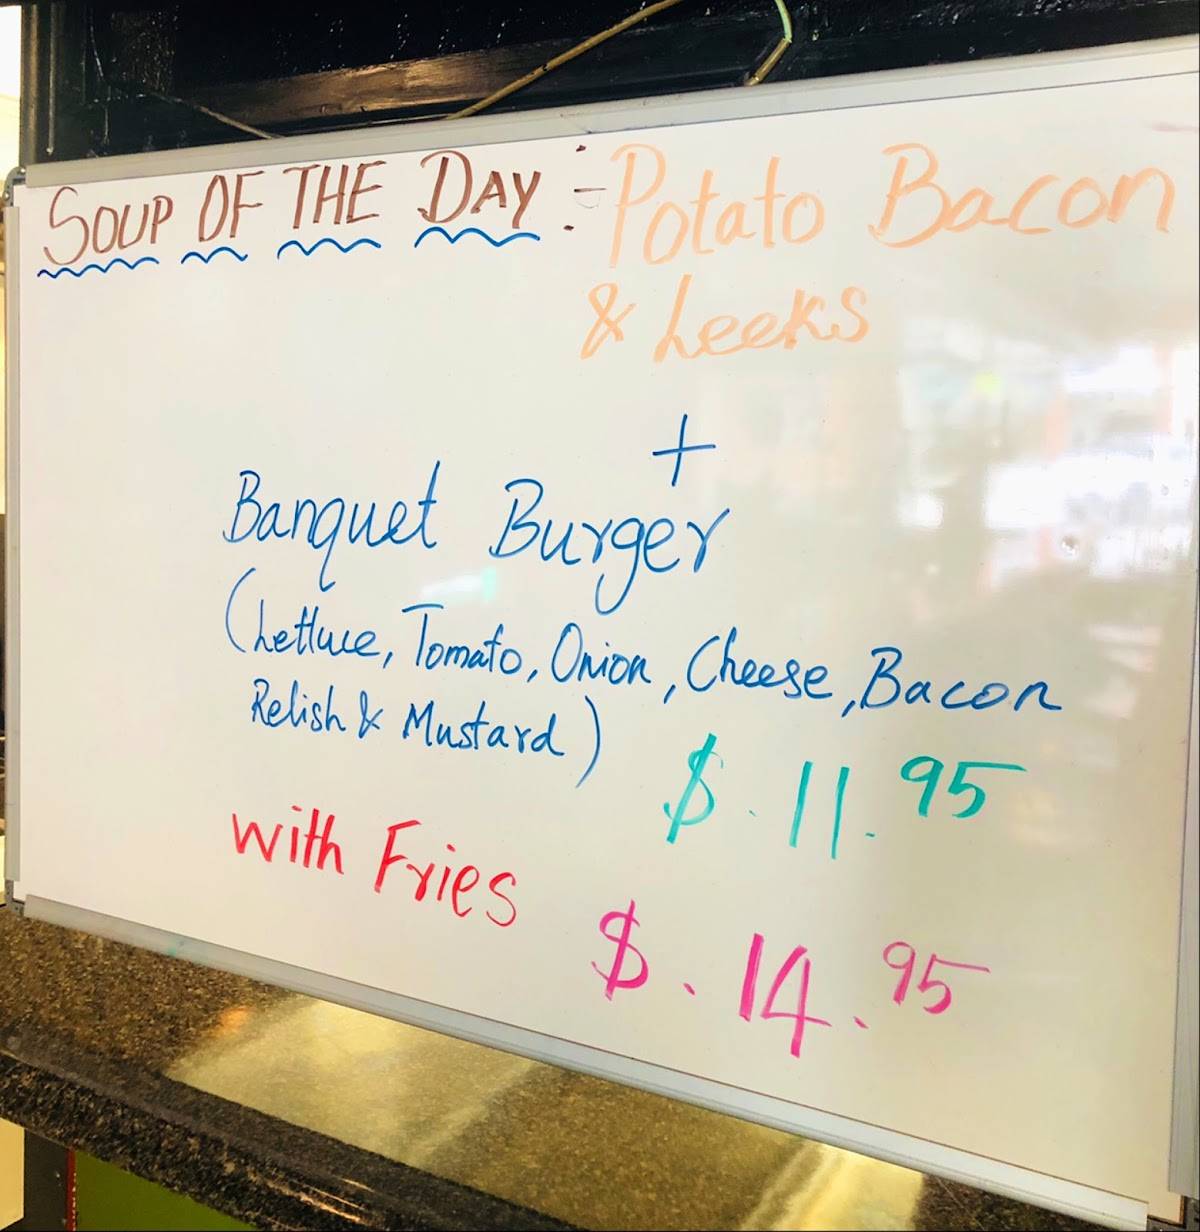 SOUP OF THE DAY :- Potato Bacon
& Leeks
+
Banquet Burger
(Lettuce, Tomato, Onion, Cheese, Bacon
Relish & Mustard)
$.11.95
with Fries
$.14.95